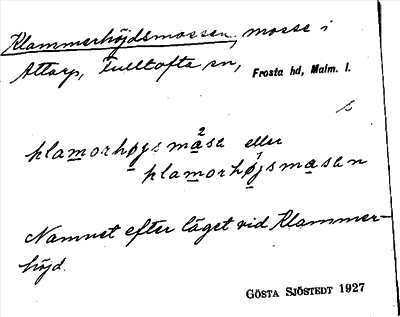 Klammerhöjdsmossen, mosse i
Attarp, Fulltofta sn, Frosta hd, Malm. l.
s
klamorhøgsmåsa eller
klamorhøjsmasen
Namnet efter läget vid Klammer-
höjd.
GÖSTA SJÖSTEDT 1927